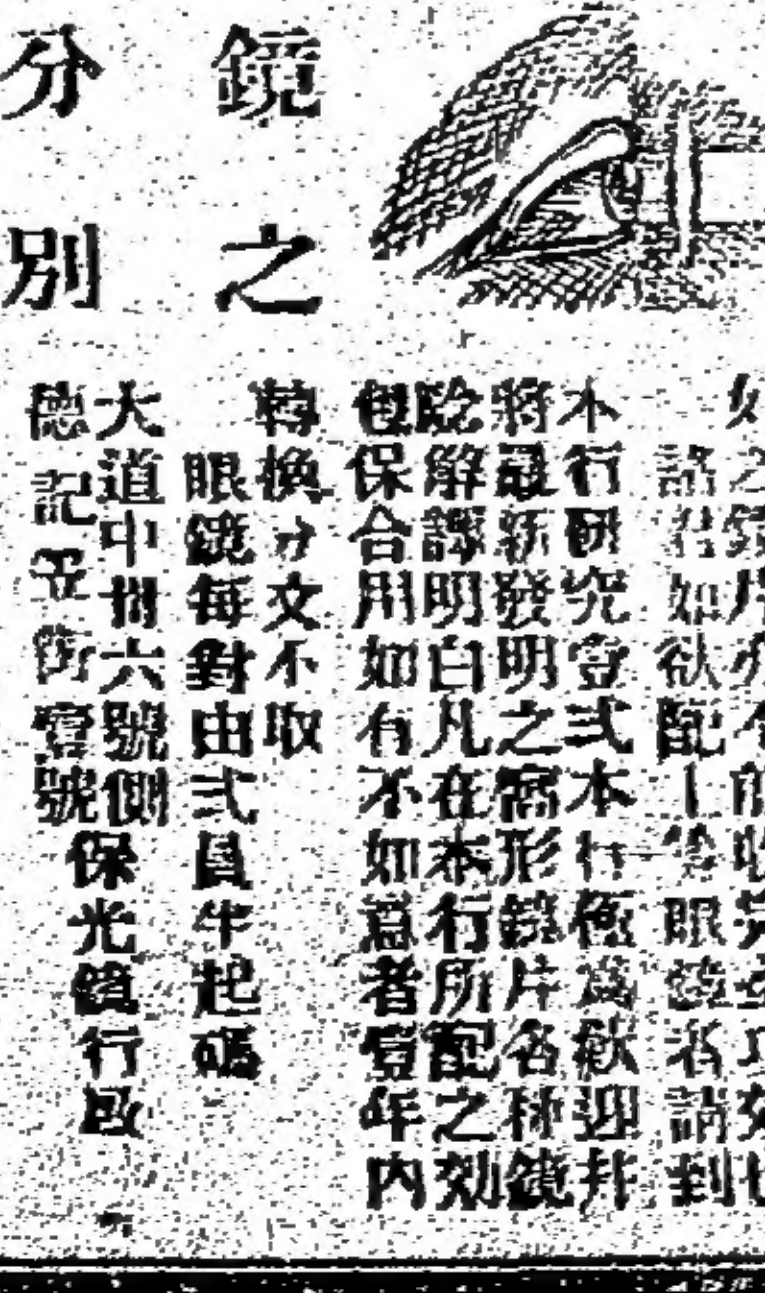 鏡之
分別
諸君如欲配上等眼鏡者請到
本行研究壹式本行極為歡迎并
將最新發明之窩形鏡片各種鏡
解譯明白凡在本行所配之効
包保合用如有不如意者壹年內
轉換分文不取
眼鏡每對由式員半起碼
大道中卅六號側
德記
街壹號
保光鏡行啟